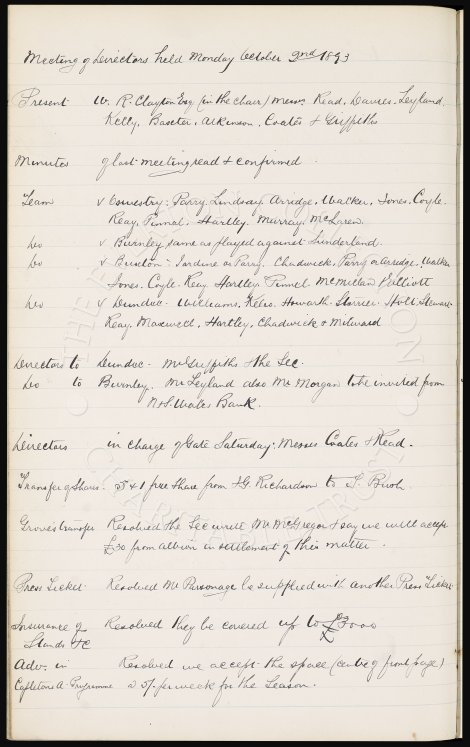 Meeting of Directors held Monday October 2nd 1893
Present W. R. Clayton Esq (in the chair) Messrs Read, Davies, Leyland,
Kelly, Baxter, Atkinson, Coates & Griffiths
Minutes of last meeting read & confirmed
Team v Oswestry: Parry, Lindsay, Arredge, Walker, Jones, Coyle.
Reay, Finnal, Hartley, Murray McLaren.
Do v Burnley same as played against Sunderland.
Do v Buxton: Jardine or Parry, Chadwick, Parry or Arredge, Walker
Jones, Coyle, Reay Hartley, Finnal McMillan Elliott
Do v Dundee. Williams, Kelso, Howarth, Storrier Holt, Stewart.
Reay, Maxwell, Hartley, Chadwick & Milward
Directors to Dundee. Mr Griffiths & the Sec.
Do to Burnley. Mr Leyland also Mr Morgan to be invited from
N & S. Wales Bank.
Directors in charge of Gate Saturday: Messrs Coates & Read.
Transfer of Shares. 5 & 1 free share from G. Richardson to T.
Groves transfer Resolved the Sec write Mr McGregor & say we will accept
£30 from Albion in settlement of this matter.
Press Ticket Resolved Mr Parsonage be supplied with another Press Ticket
Insurance of Resolved they be covered up to £3000
Stands &c
Adv. in Resolved we accept the space (centre of front page)
Programme a 5/. per week for the Season.